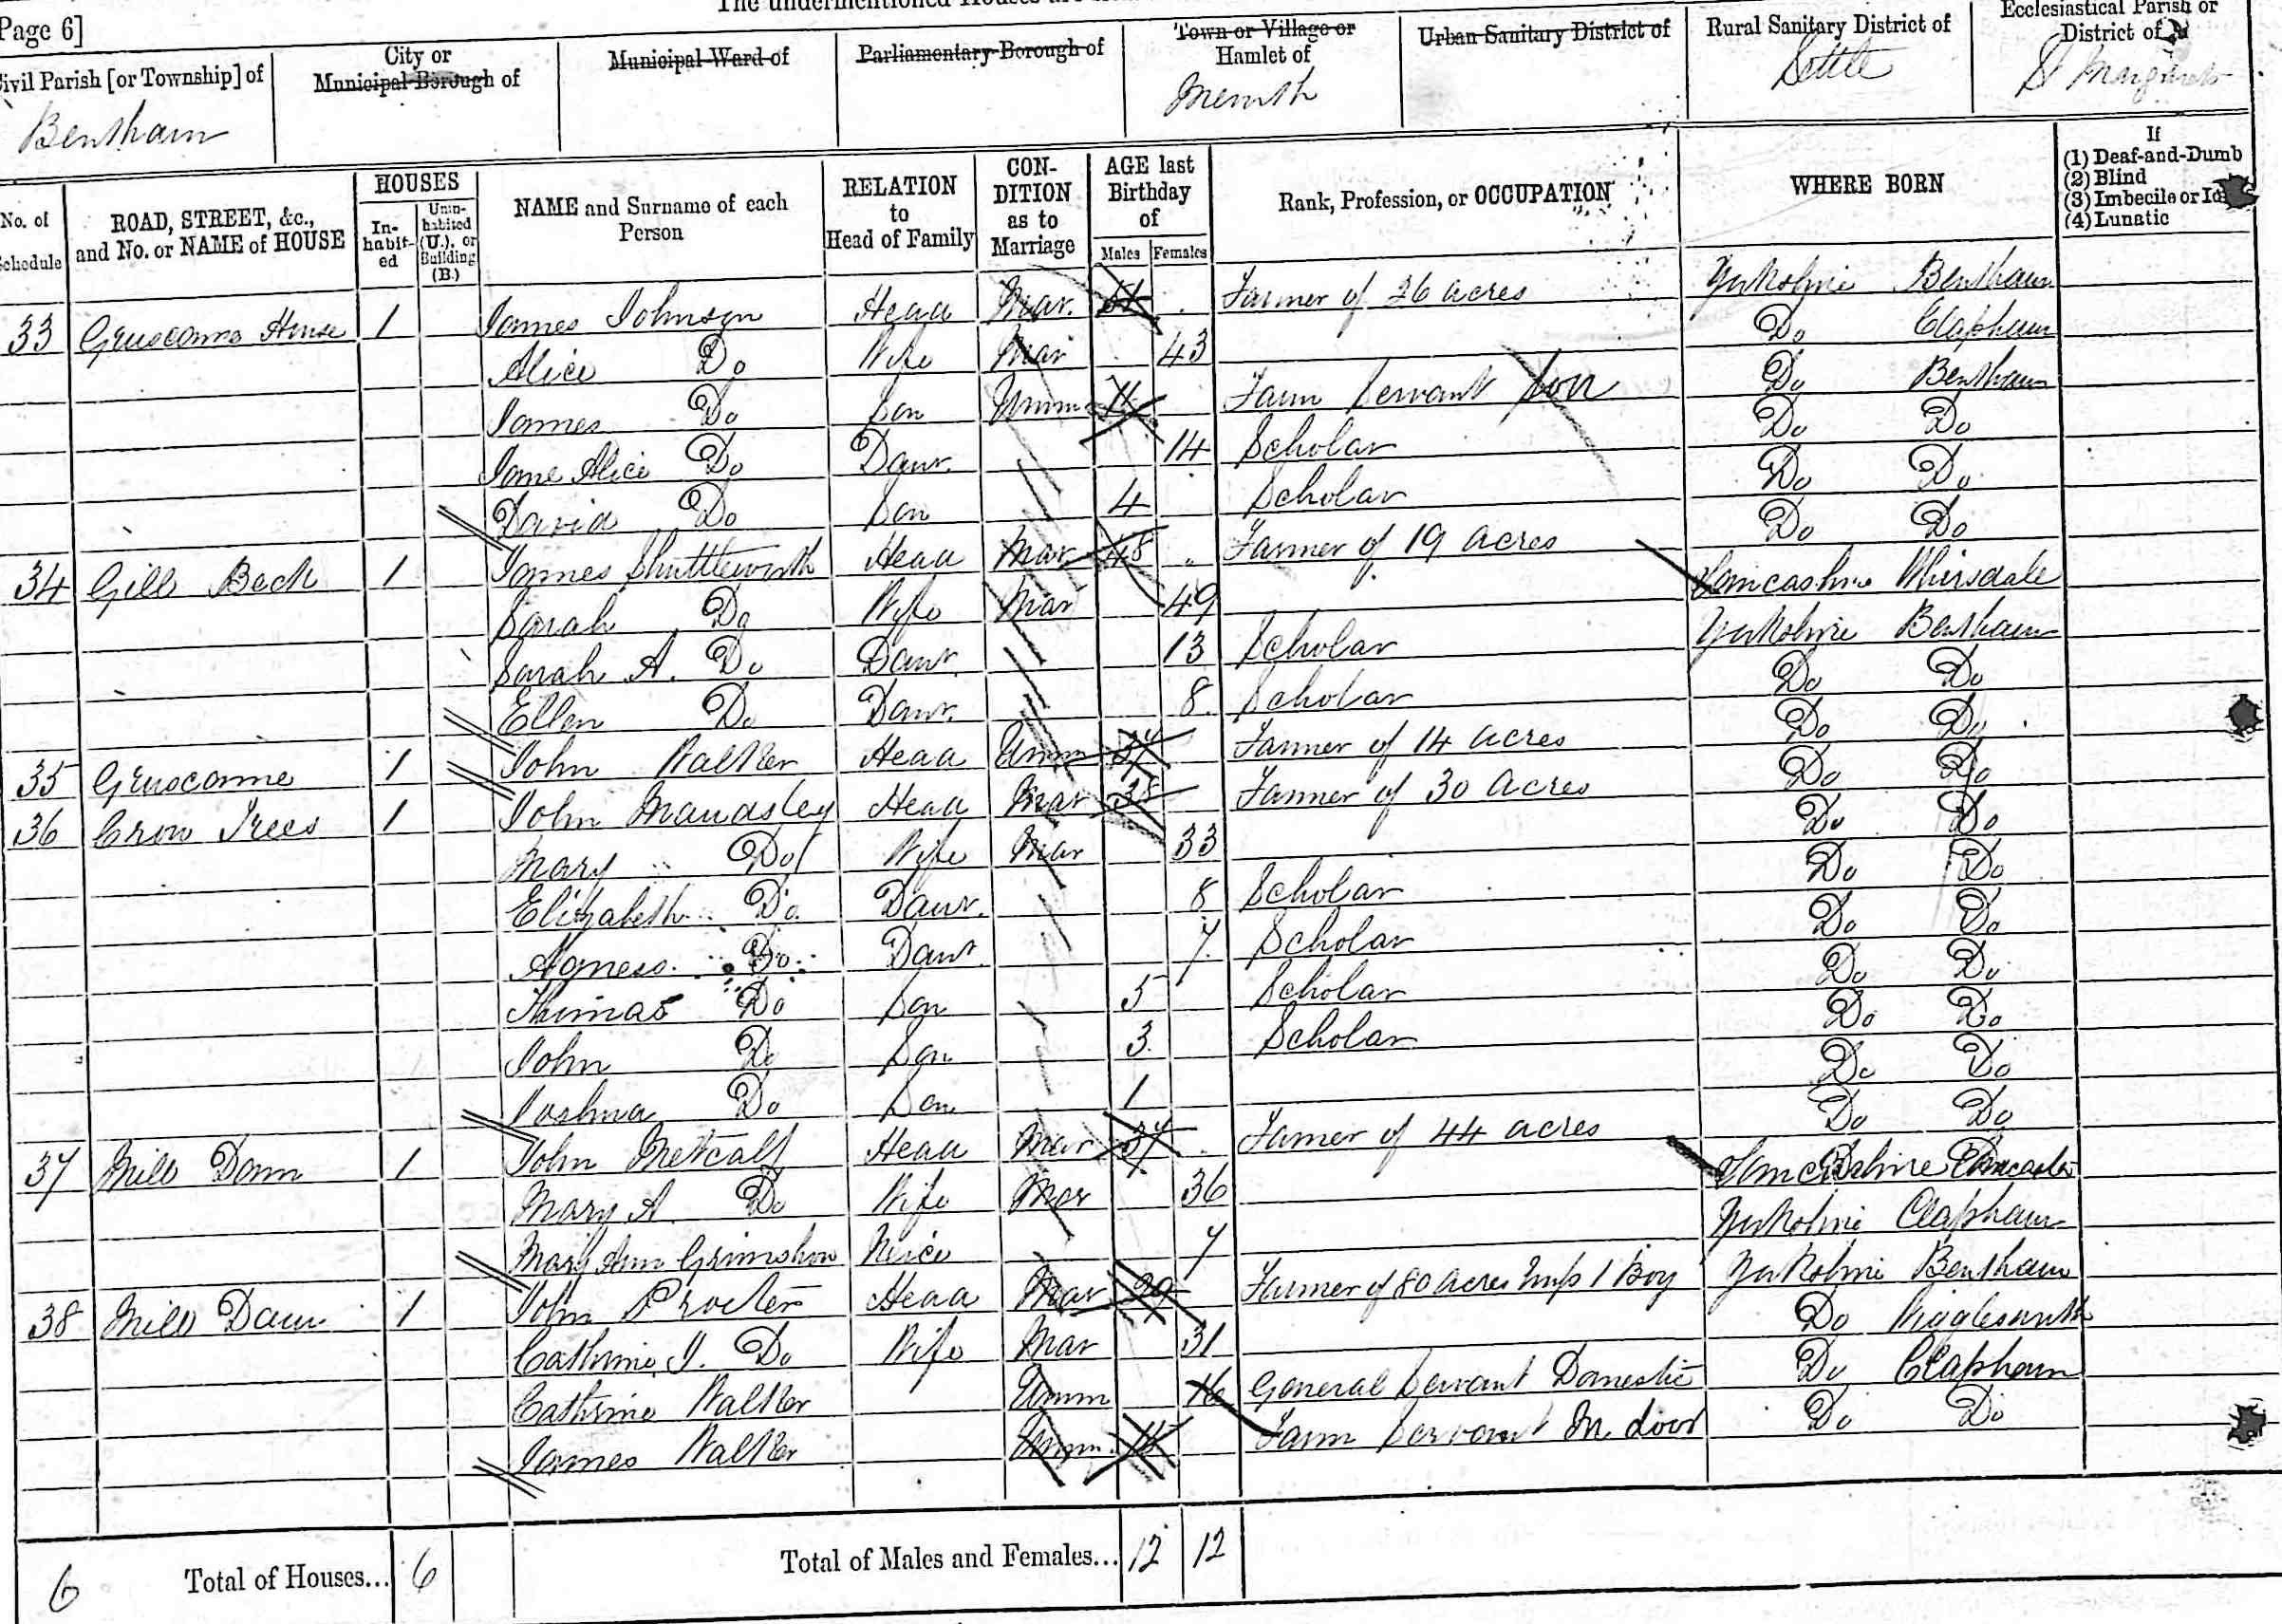 The undermentioned Houses are
Page 6]
Civil Parish [or Township] of
Bentham
City or Municipal Borough of
Municipal Ward of
Parliamentary Borough of
Town or Village or Hamlet of
Urban Sanitary District of
Rural Sanitary District of
Settle
Ecclesiastical Parish or District of
St Margarets
No. of Schedule
ROAD, STREET, &c., and No. or NAME of HOUSE
HOUSES
In-habit-ed
Unin-habited (U.), or Building (B.)
NAME and Surname of each Person
RELATION to Head of Family
CON-DITION as to Marriage
AGE last Birthday of
Males Females
Rank, Profession, or OCCUPATION
WHERE BORN
If
(1) Deaf-and-Dumb
(2) Blind
(3) Imbecile or
(4) Lunatic
33 House 1 James Johnson Head Mar. Farmer of 26 acres Yorkshire Bentham
Alice Do Wife Mar 43 Do Clapham
James Do Son Unm Farm Servant Son Do Bentham
Jane Alice Do Daur. 14 Scholar Do Do
David Do Son 4 Scholar Do Do
34 Gill Beck 1 James Shuttleworth Head Mar 48 Farmer of 19 acres Do Do
Sarah Do Wife Mar 49 Lancashire
Sarah A. Do Daur. 13 Scholar Yorkshire Bentham
Ellen Do Daur. 8 Scholar Do Do
35 1 John Walker Head Unm 37 Farmer of 14 acres Do Do
36 Crow Trees 1 John Mandsley Head Mar 38 Farmer of 30 acres Do Do
Mary Do Wife Mar 33 Do Do
Elizabeth Do Daur. 8 Scholar Do Do
Agness Do Daur. 7 Scholar Do Do
Thomas Do Son 5 Scholar Do Do
John Do Son 3 Scholar Do Do
Joshua Do Son 1 Do Do
37 Mill Dam 1 John Metcalf Head Mar 37 Farmer of 44 acres Do Do
Mary A. Do Wife Mar 36 Lancashire Lancaster
Mary Ann Grimshaw Neice 7 Yorkshire Clapham
38 Mill Dam 1 John Procter Head Mar 29 Farmer of 80 acres Emp 1 Boy Yorkshire Bentham
Catherine J. Do Wife Mar 31 Do Wigglesworth
Catherine Walker Unm 16 General Servant Domestic Do Clapham
James Walker Unm. Farm Servant In door Do Do
6 Total of Houses... 6 Total of Males and Females... 12 12